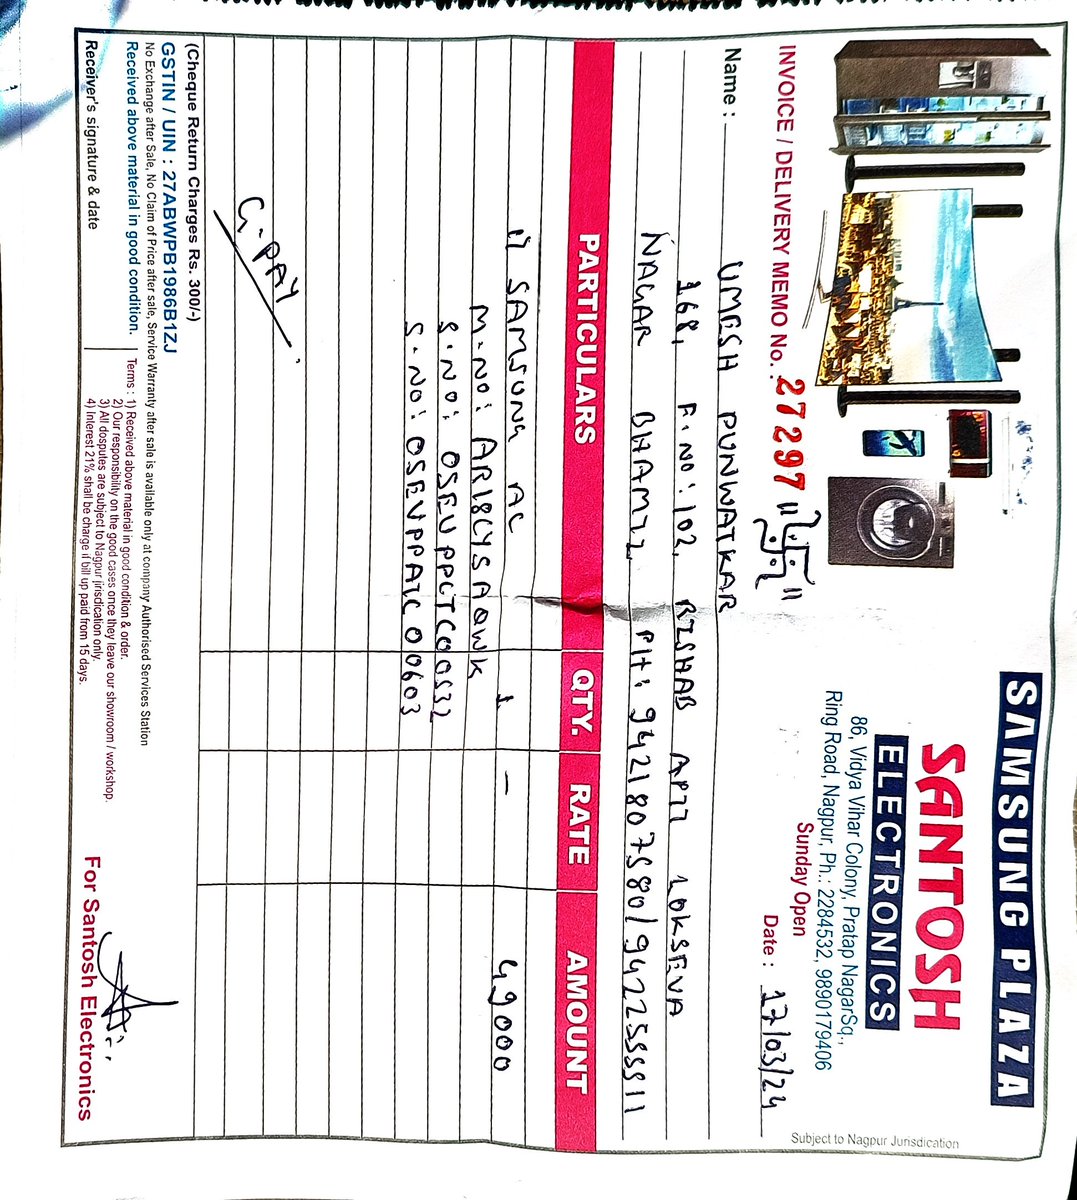 Subject to Nagpur Jurisdication
SAMSUNG PLAZA
SANTOSH
ELECTRONICS
86, Vidya Vihar Colony, Pratap NagarSq.,
Ring Road, Nagpur, Ph.: 2284532, 9890179406
Sunday Open
INVOICE / DELIVERY MEMO No.: 27297
Date : 17/03/24
Name : UMESH PUNWATKAR
168, F.NO: 102, RISHAB APTT LOKSEVA
NAGAR BHAMTI, PH: 9421807580/9422555511
PARTICULARS QTY. RATE AMOUNT
1) SAMSUNG AC 1 – 49000
M.NO: AR18CYSAQWK
S.NO: 0SEUPPCTC00532
S.NO: 0SEVPPATC00603
G.PAY
(Cheque Return Charges Rs. 300/-)
GSTIN / UIN : 27ABWPB1986B1ZJ
No Exchange after Sale, No Claim of Price after sale, Service Warranty after sale is available only at company Authorised Services Station
Received above material in good condition.
Terms : 1) Received above material in good condition & order.
2) Our responsibility on the good cases once they leave our showroom / workshop.
3) All dosputes are subject to Nagpur jirisdication only.
4) Interest 21% shall be charge if bill up paid from 15 days.
Receiver's signature & date
For Santosh Electronics